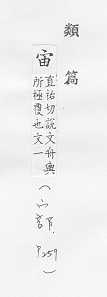 類篇
宙
直祐切說文舟輿
所極覆也文一
(宀部, P259)